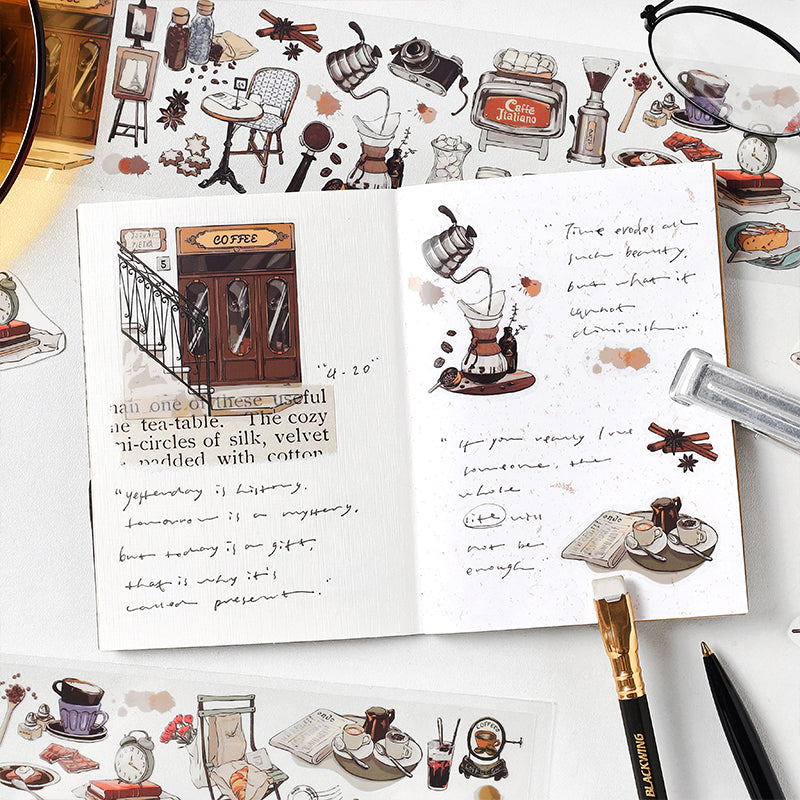 Caffè
Italiano
COFFEE
5
"4-20"
han one of these useful
he tea-table. The cozy
mi-circles of silk, velvet
padded with cotton
"yesterday is history.
tomorrow is a mystery.
but today is a gift,
that is why it's
called present."
"Time erodes all
such beauty,
but what it
cannot
diminish..."
"if you really love
someone, the
whole
life will
not be
enough
BLACKWING
COFFEE